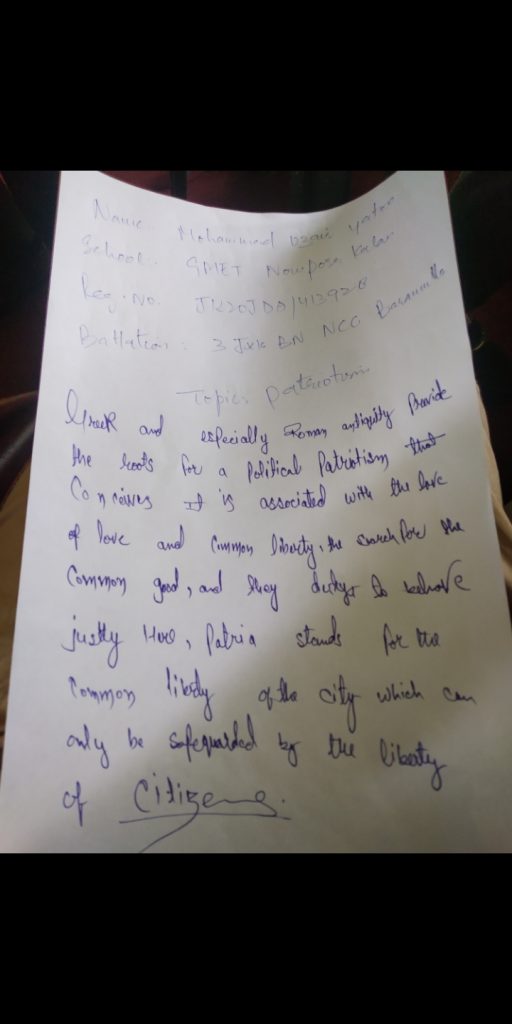 Name: Mohammad
School: GMET Nowpora
Reg. No. JK20JDA/413926
Battation : 3 J&K BN NCC Baramulla
Topic: patriotism
Greek and especially Roman antiquity Provide
the roots for a Political Patriotism that
Conceives It is associated with the love
of love and Common liberty, the search for the
Common good, and they dutys to behave
justly Here, Patria stands for the
Common libety of the city which can
only be safegualded by the libeaty
of Citizens.